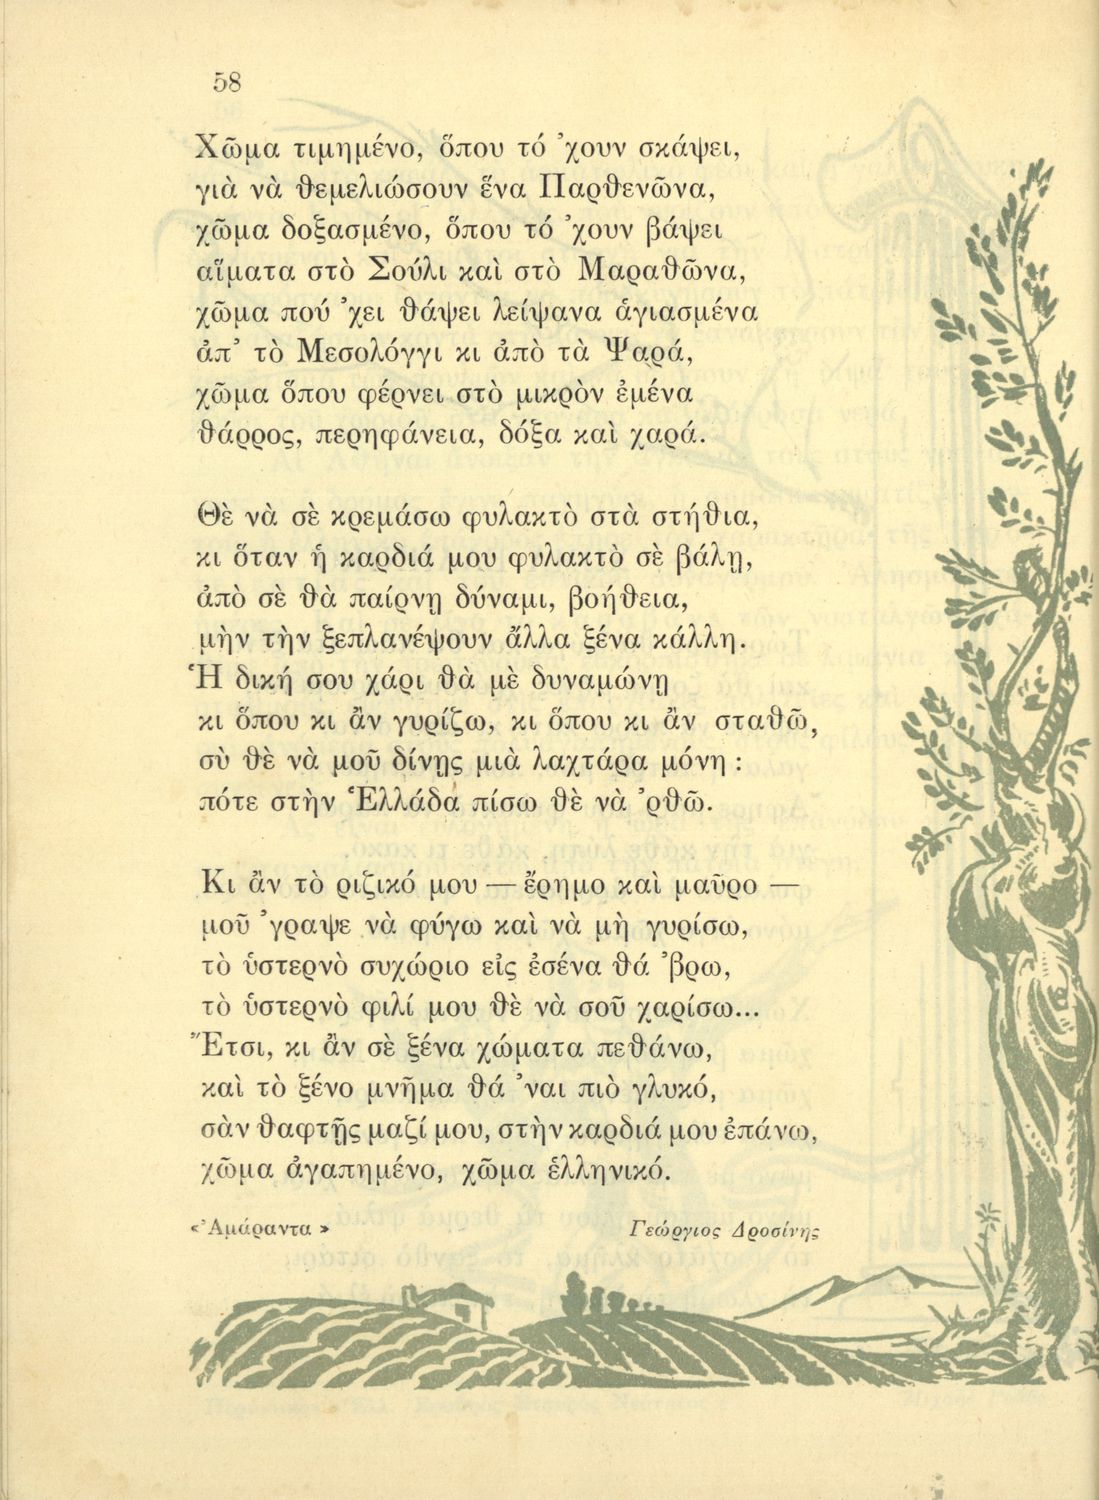 58
Χῶμα τιμημένο, ὅπου τό 'χουν σκάψει,
γιὰ νὰ θεμελιώσουν ἕνα Παρθενῶνα,
χῶμα δοξασμένο, ὅπου τό 'χουν βάψει
αἵματα στὸ Σούλι καὶ στὸ Μαραθῶνα,
χῶμα πού 'χει θάψει λείψανα ἁγιασμένα
ἀπ' τὸ Μεσολόγγι κι ἀπὸ τὰ Ψαρά,
χῶμα ὅπου φέρνει στὸ μικρὸν ἐμένα
θάρρος, περηφάνεια, δόξα καὶ χαρά.
Θὲ νὰ σὲ κρεμάσω φυλακτὸ στὰ στήθια,
κι ὅταν ἡ καρδιά μου φυλακτὸ σὲ βάλῃ,
ἀπὸ σὲ θὰ παίρνῃ δύναμι, βοήθεια,
μὴν τὴν ξεπλανέψουν ἄλλα ξένα κάλλη.
Ἡ δική σου χάρι θὰ μὲ δυναμώνῃ
κι ὅπου κι ἂν γυρίζω, κι ὅπου κι ἂν σταθῶ,
σὺ θὲ νὰ μοῦ δίνῃς μιὰ λαχτάρα μόνη :
πότε στὴν Ἑλλάδα πίσω θὲ νὰ 'ρθῶ.
Κι ἂν τὸ ριζικό μου — ἔρημο καὶ μαῦρο —
μοῦ 'γραψε νὰ φύγω καὶ νὰ μὴ γυρίσω,
τὸ ὑστερνὸ συχώριο εἰς ἐσένα θά 'βρω,
τὸ ὑστερνὸ φιλί μου θὲ νὰ σοῦ χαρίσω...
Ἔτσι, κι ἂν σὲ ξένα χώματα πεθάνω,
καὶ τὸ ξένο μνῆμα θά 'ναι πιὸ γλυκό,
σὰν θαφτῇς μαζί μου, στὴν καρδιά μου ἐπάνω,
χῶμα ἀγαπημένο, χῶμα ἑλληνικό.
«Ἀμάραντα» Γεώργιος Δροσίνης